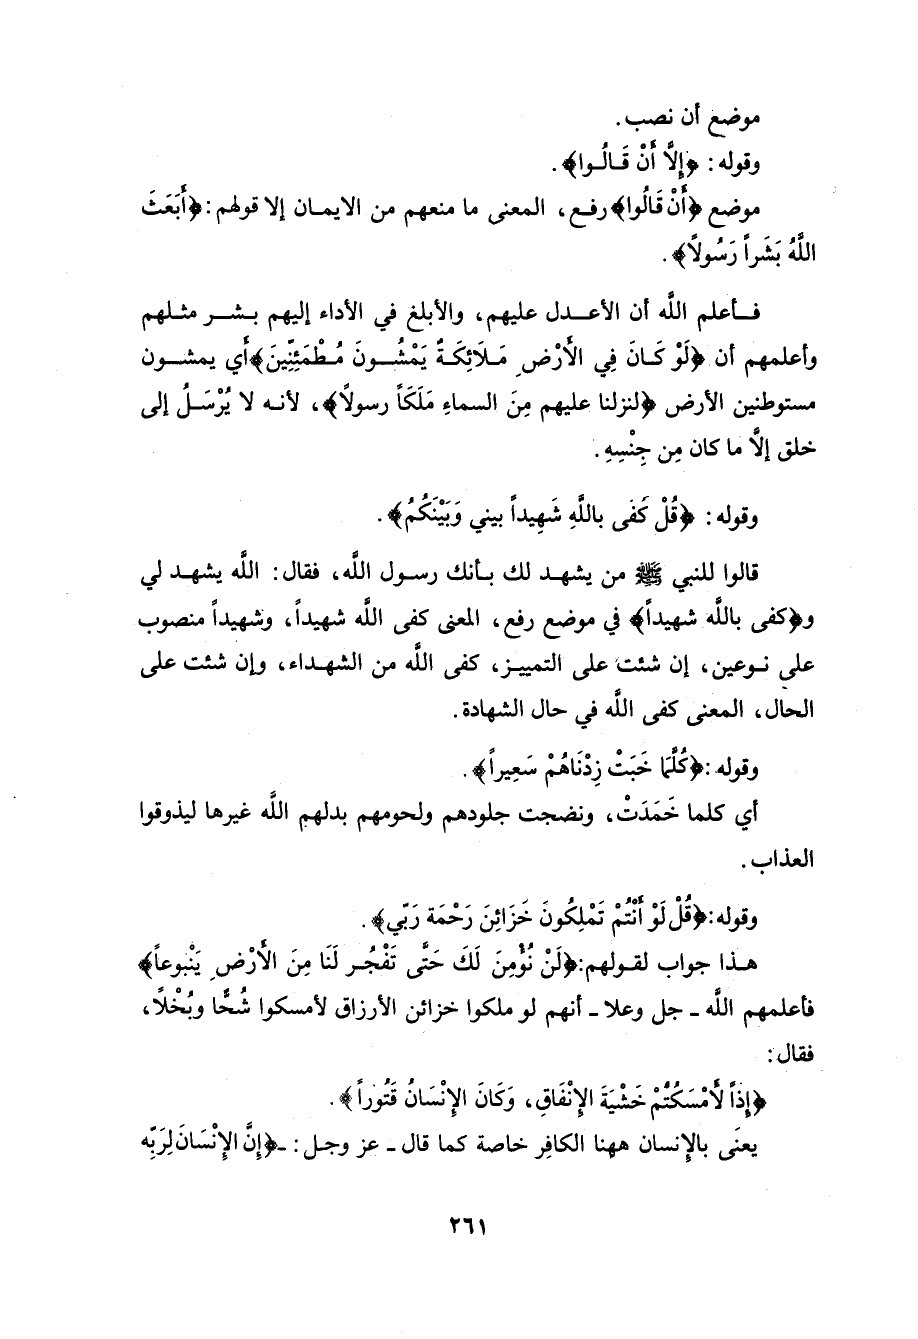 موضع أن نصب.
وقوله: ﴿إِلَّا أَنْ قَالُوا﴾.
موضع ﴿أَنْ قَالُوا﴾ رفع، المعنى ما منعهم من الايمان إلا قولهم: ﴿أَبَعَثَ
اللَّهُ بَشَراً رَسُولاً﴾.
فأعلم اللَّه أن الأعدل عليهم، والأبلغ في الأداء إليهم بشر مثلهم
وأعلمهم أن ﴿لَوْ كَانَ فِي الأَرْضِ مَلَائِكَةٌ يَمْشُونَ مُطْمَئِنِّينَ﴾ أي يمشون
مستوطنين الأرض ﴿لنزلنا عليهم مِنَ السماءِ مَلَكَاً رسولاً﴾، لأنه لا يُرْسَلُ إلى
خلق إلَّا ما كان مِن جِنْسِهِ.
وقوله: ﴿قُلْ كَفَى باللَّهِ شَهِيداً بيني وَبَيْنَكُمْ﴾.
قالوا للنبي ﷺ من يشهد لك بأنك رسول اللَّه، فقال: اللَّه يشهد لي
و﴿كفى باللَّه شهيداً﴾ في موضع رفع، المعنى كفى اللَّه شهيداً، وشهيداً منصوب
على نوعين، إن شئت على التمييز، كفى اللَّه من الشهداء، وإن شئت على
الحال، المعنى كفى اللَّه في حال الشهادة.
وقوله: ﴿كُلَّمَا خَبَتْ زِدْنَاهُمْ سَعِيراً﴾.
أي كلما خَمَدَتْ، ونضجت جلودهم ولحومهم بدلهم اللَّه غيرها ليذوقوا
العذاب.
وقوله: ﴿قُلْ لَوْ أَنْتُمْ تَمْلِكُونَ خَزَائِنَ رَحْمَة رَبِّي﴾.
هذا جواب لقولهم: ﴿لَنْ نُؤْمِنَ لَكَ حَتَّى تَفْجُر لَنَا مِنَ الأَرْضِ يَنْبوعاً﴾
فأعلمهم اللَّه ـ جل وعلا ـ أنهم لو ملكوا خزائن الأرزاق لأمسكوا شُحًّا وبُخْلاً،
فقال:
﴿إِذاً لَأَمْسَكْتُمْ خَشْيَةَ الإِنْفَاقِ، وَكَانَ الإِنْسَانُ قَتُوراً﴾.
يعنَى بالإنسان ههنا الكافِر خاصة كما قال ـ عز وجل: ـ ﴿إِنَّ الإِنْسَانَ لِرَبِّه
٢٦١